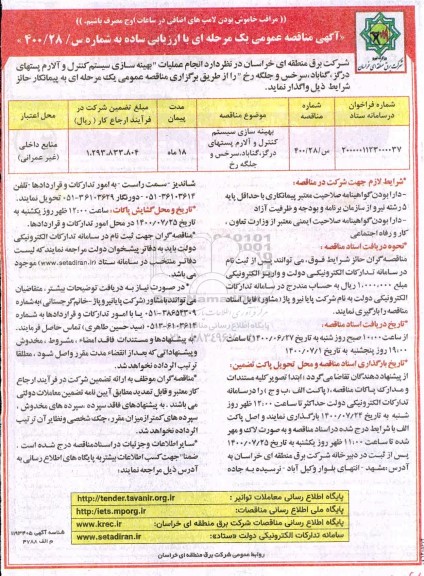 (( مراقب خاموش بودن لامپ های اضافی در ساعات اوج مصرف باشیم. ))
«آگهی مناقصه عمومی یک مرحله ای با ارزیابی ساده به شماره س/ ۴۰۰/۲۸ »
شرکت برق منطقه ای خراسان
شرکت برق منطقه ای خراسان در نظر دارد انجام عملیات "بهینه سازی سیستم کنترل و آلارم پستهای
درگز، گناباد، سرخس و جلگه رخ " را از طریق برگزاری مناقصه عمومی یک مرحله ای به پیمانکار حائز
شرایط ذیل واگذار نماید.
شماره فراخوان در سامانه ستاد
شماره مناقصه
موضوع مناقصه
مدت پیمان
مبلغ تضمین شرکت در فرآیند ارجاع کار ( ریال)
محل اعتبار
۲۰۰۰۰۰۱۱۲۳۰۰۰۰۳۷
س/۴۰۰/۲۸
بهینه سازی سیستم کنترل و آلارم پستهای درگز، گناباد، سرخس و جلگه رخ
۱۸ ماه
۱.۲۹۳.۸۳۳.۸۰۴
منابع داخلی (غیر عمرانی)
*شرایط لازم جهت شرکت در مناقصه:
-دارا بودن گواهینامه صلاحیت معتبر پیمانکاری با حداقل پایه
۵ رشته نیرو از سازمان برنامه و بودجه و ظرفیت آزاد
-دارا بودن گواهینامه صلاحیت ایمنی معتبر از وزارت تعاون ،
کار و رفاه اجتماعی
*نحوه دریافت اسناد مناقصه:
مناقصه گران حائز شرایط فوق، می توانند پس از ثبت نام
در سامانه تدارکات الکترونیکی دولت و واریز الکترونیکی
مبلغ ۱.۰۰۰.۰۰۰ ریال به حساب مندرج در سامانه تدارکات
الکترونیکی دولت به نام شرکت پایا نیرو پاژ ( مشاور) فایل اسناد
مناقصه را بارگیری نمایند.
*تاریخ دریافت اسناد مناقصه:
از ساعت ۱۰:۰۰ صبح روز شنبه به تاریخ ۱۴۰۰/۰۶/۲۷ تا ساعت
۱۹:۰۰ روز پنجشنبه به تاریخ ۱۴۰۰/۰۷/۱
*تاریخ بارگذاری اسناد مناقصه و محل تحویل پاکت تضمین:
از پیشنهاد دهندگان تقاضا می گردد ، ابتدا تصویر کلیه مستندات
و مدارک پاکات مناقصه، ( پاکت الف، ب و ج ) را در سامانه
تدارکات الکترونیکی دولت حداکثر تا ساعت ۱۲:۰۰ ظهر روز
شنبه به تاریخ ۱۴۰۰/۰۷/۲۴ بارگذاری نمایند و اصل پاکت
الف با شرایط درج شده در اسناد مناقصه و به صورت لاک و مهر
شده تا ساعت ۱۱:۰۰ ظهر روز یکشنبه به تاریخ ۱۴۰۰/۰۷/۲۵
پس از ثبت در دبیرخانه شرکت برق منطقه ای خراسان به
آدرس: مشهد - انتهای بلوار وکیل آباد - نرسیده به جاده
شاندیز - سمت راست - به امور تدارکات و قراردادها -تلفن
۰۵۱-۳۶۱۰۳۶۱۴ - دورنگار ۳۶۱۰۳۶۲۹-۰۵۱ تحویل نمایند.
*تاریخ و محل گشایش پاکات: ساعت ۱۲:۰۰ ظهر روز یکشنبه به
تاریخ ۱۴۰۰/۰۷/۲۵ در محل امور تدارکات و قراردادها.
*مناقصه گران جهت ثبت نام در سامانه تدارکات الکترونیکی
دولت باید به دفاتر پیشخوان دولت مراجعه نمایند(که لیست
دفاتر منتخب در سامانه ستاد (www.setadiran.ir) موجود
می باشد.
* در صورت نیاز به دریافت توضیحات بیشتر، متقاضیان
می توانند با مشاور (شرکت پایا نیرو پاژ - خانم گرجستانی )به شماره
۰۵۱-۳۸۶۵۴۳۰۹ یا با امور تدارکات و قراردادها به شماره
۰۵۱-۳۶۱۰۳۶۱۴ (سید حسین طاهری) تماس حاصل فرمایند.
*به پیشنهادها و مستندات فاقد امضاء ، مشروط ، مخدوش
و پیشنهاداتی که بعد از انقضاء مدت مقرر واصل شود ، مطلقا
ترتیب اثر داده نخواهد شد.
*مناقصه گران موظف به ارائه تضمین شرکت در فرآیند ارجاع
کار معتبر و قابل تمدید مطابق آیین نامه تضمین معاملات دولتی
می باشند . به پیشنهادهای فاقد سپرده ، سپرده های مخدوش ،
سپرده های کمتر از میزان مقرر، چک شخصی و نظایر آن ترتیب
اثر داده نخواهد شد.
*سایر اطلاعات و جزئیات در اسناد مناقصه درج شده است .
ضمنا" جهت کسب اطلاعات بیشتر به پایگاه های اطلاع رسانی به
آدرس ذیل مراجعه نمایند:
پایگاه اطلاع رسانی معاملات توانیر : http://tender.tavanir.org.ir
پایگاه ملی اطلاع رسانی مناقصات: http://iets.mporg.ir
پایگاه اطلاع رسانی مناقصات شرکت برق منطقه ای خراسان: www.krec.ir
سامانه تدارکات الکترونیکی دولت «ستاد»: www.setadiran.ir
شناسه آگهی ۱۱۹۳۴۰۵
م الف ۳۷۸۸
روابط عمومی شرکت برق منطقه ای خراسان